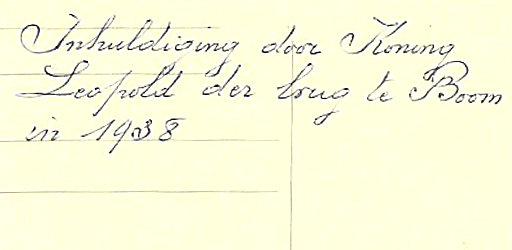 Inhuldiging door Koning
Leopold der brug te Boom
in 1938